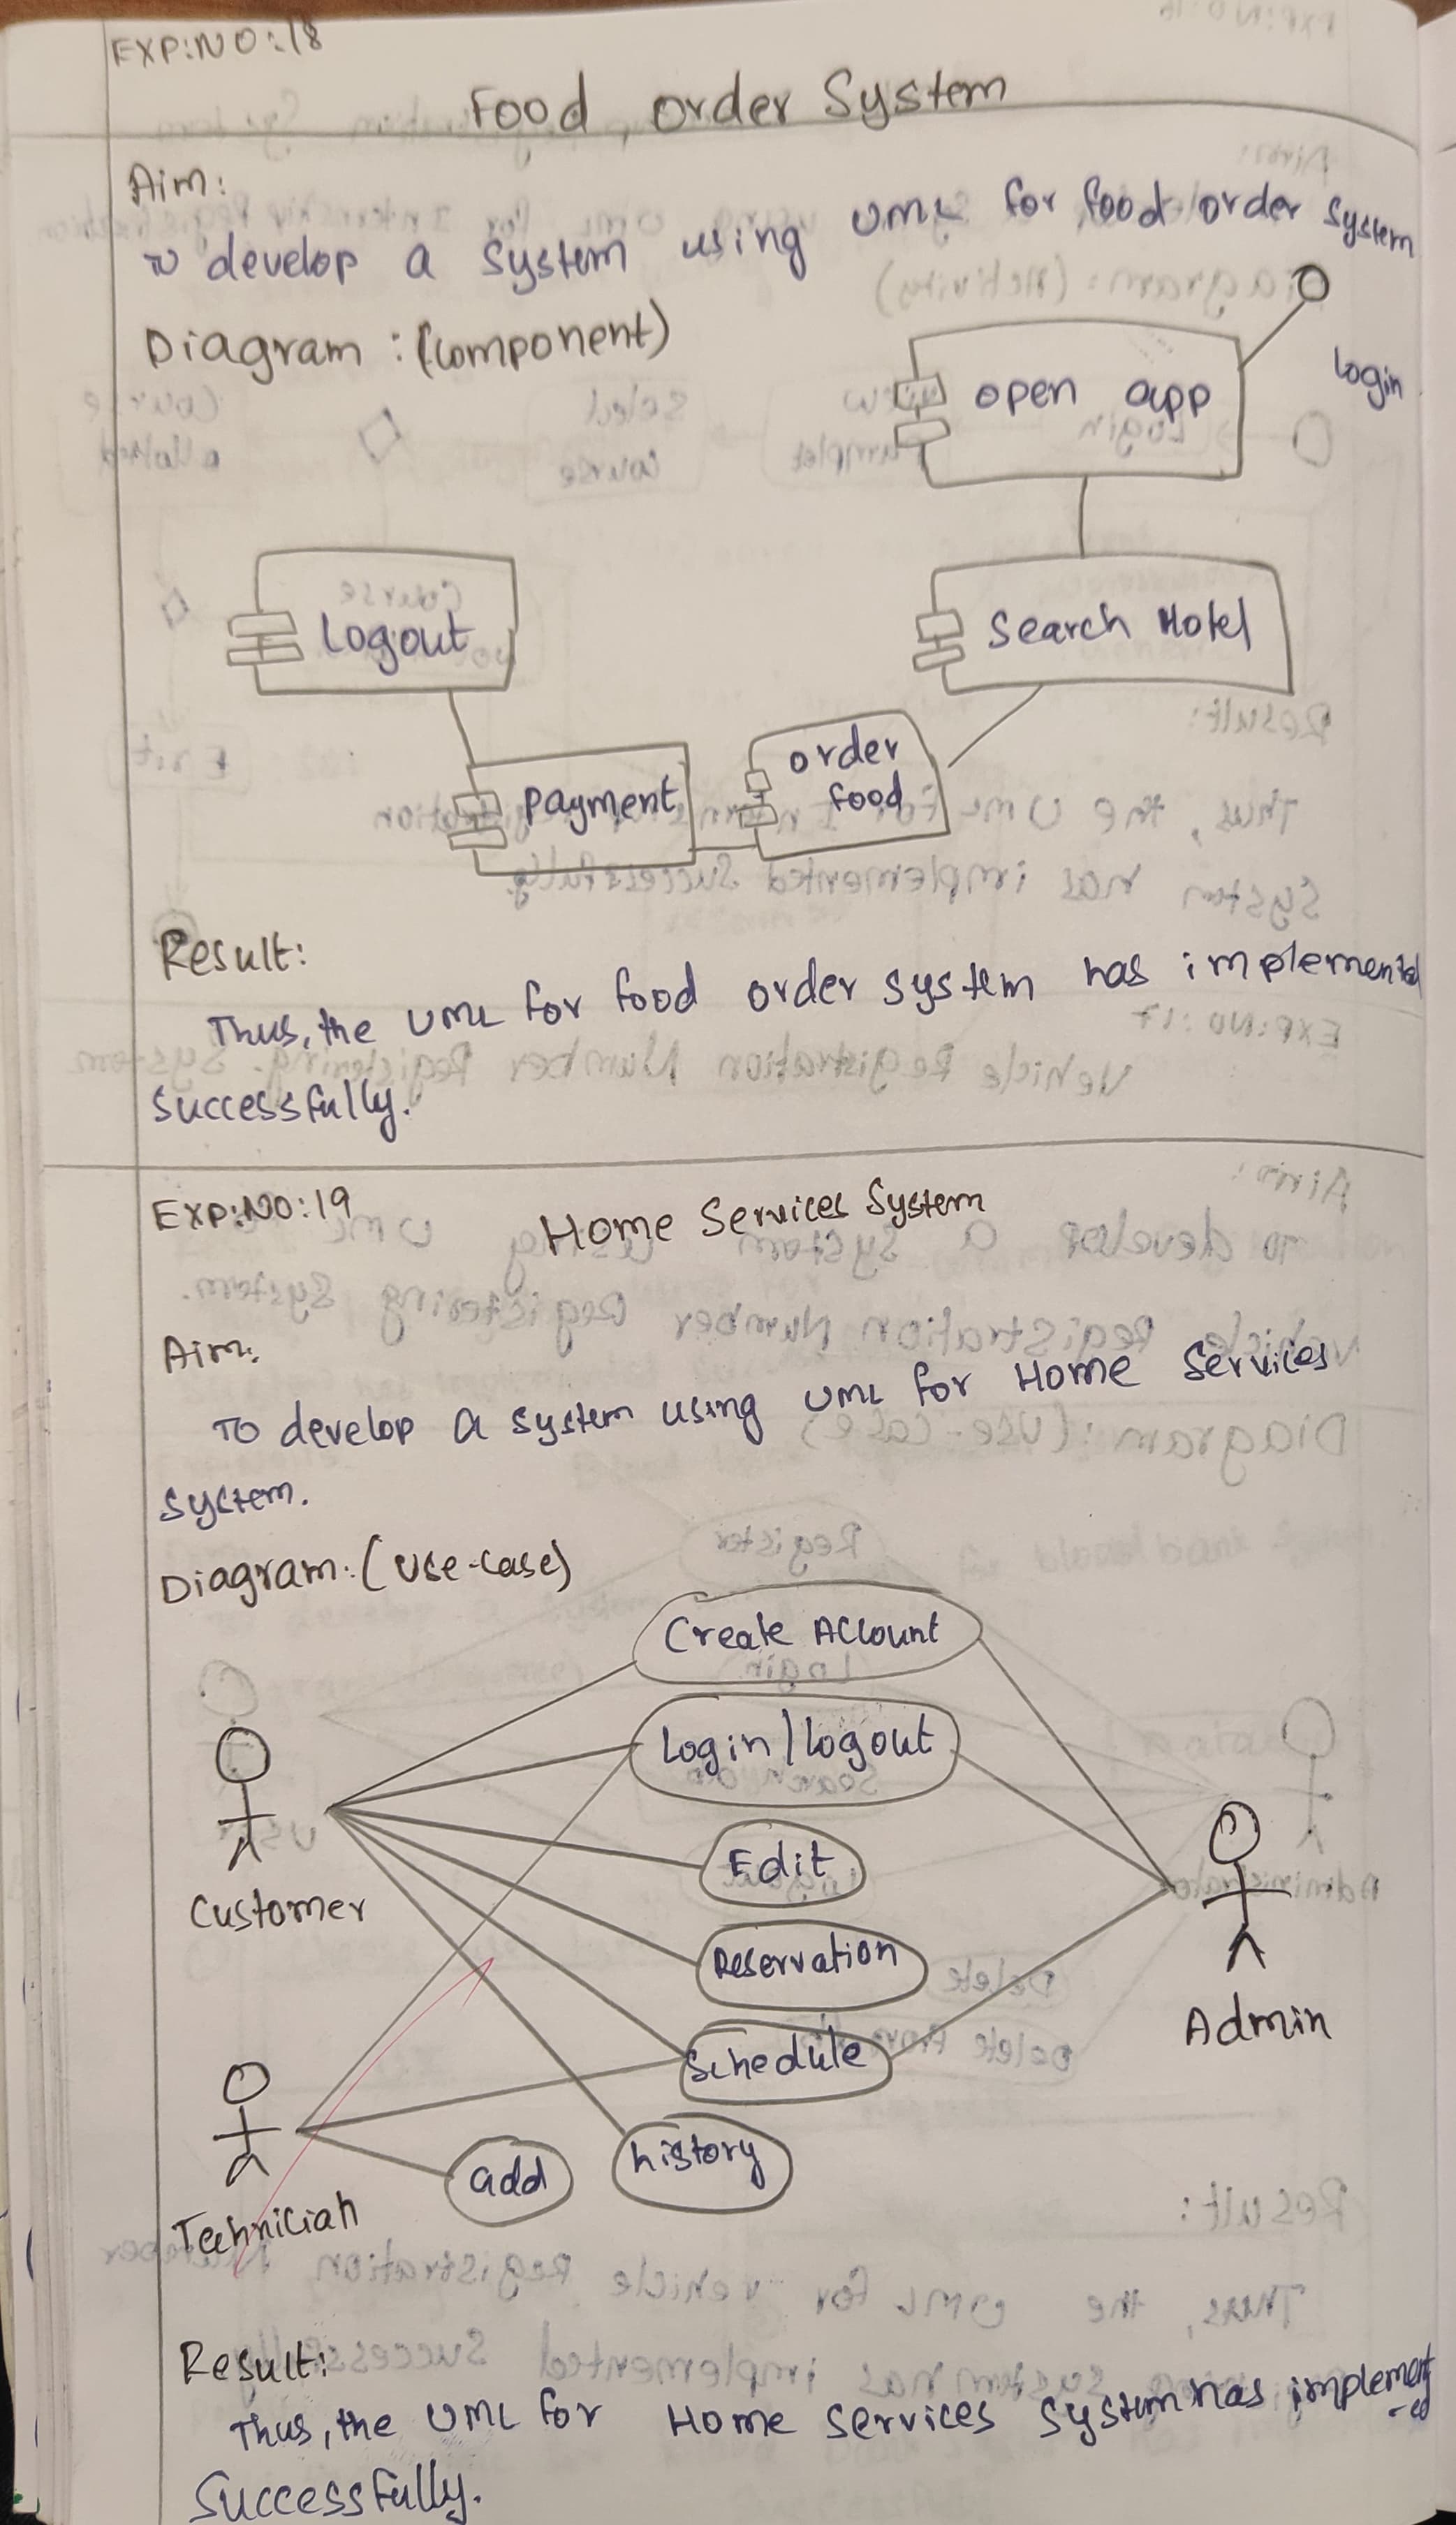 EXP:NO:18
Food order System
Aim:
To develop a System using UML for food order System
Diagram : (component)
open app
login
Search Hotel
Logout
order
food
payment
Result:
Thus, the UML for food order system has implemented
Successfully.
EXP:NO:19
Home Services System
Aim:
To develop a system using UML for Home Services
System.
Diagram: (Use-case)
Create Account
Login/logout
Edit
Customer
Reservation
Admin
Schedule
history
add
Technician
Result:
Thus, the UML for Home Services System has implement
-ed
Successfully.